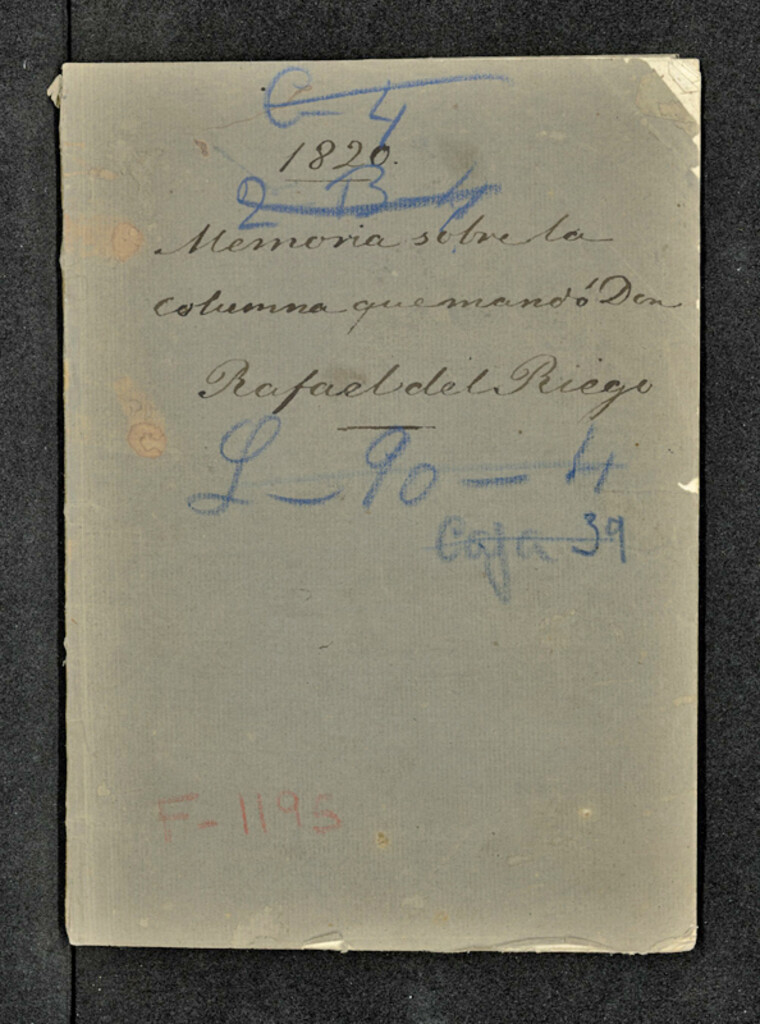 C-4
1820.
2 B 4
Memoria sobre la
columna que mandó Don
Rafael del Riego
L-90-4
Caja 39
F-1195